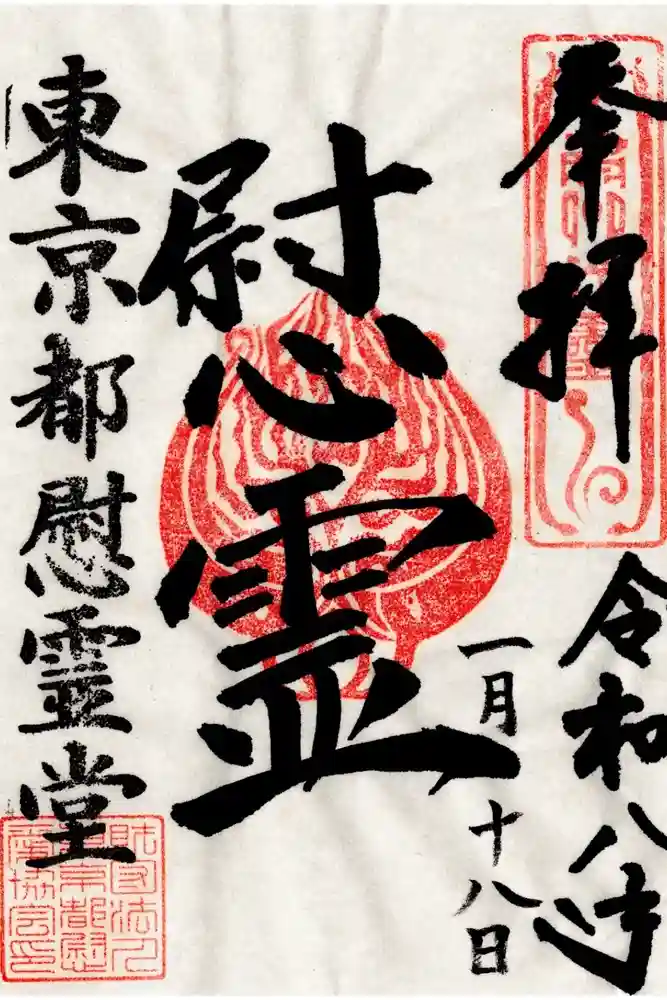 奉拝
令和八年
一月十八日
慰霊
東京都慰霊堂